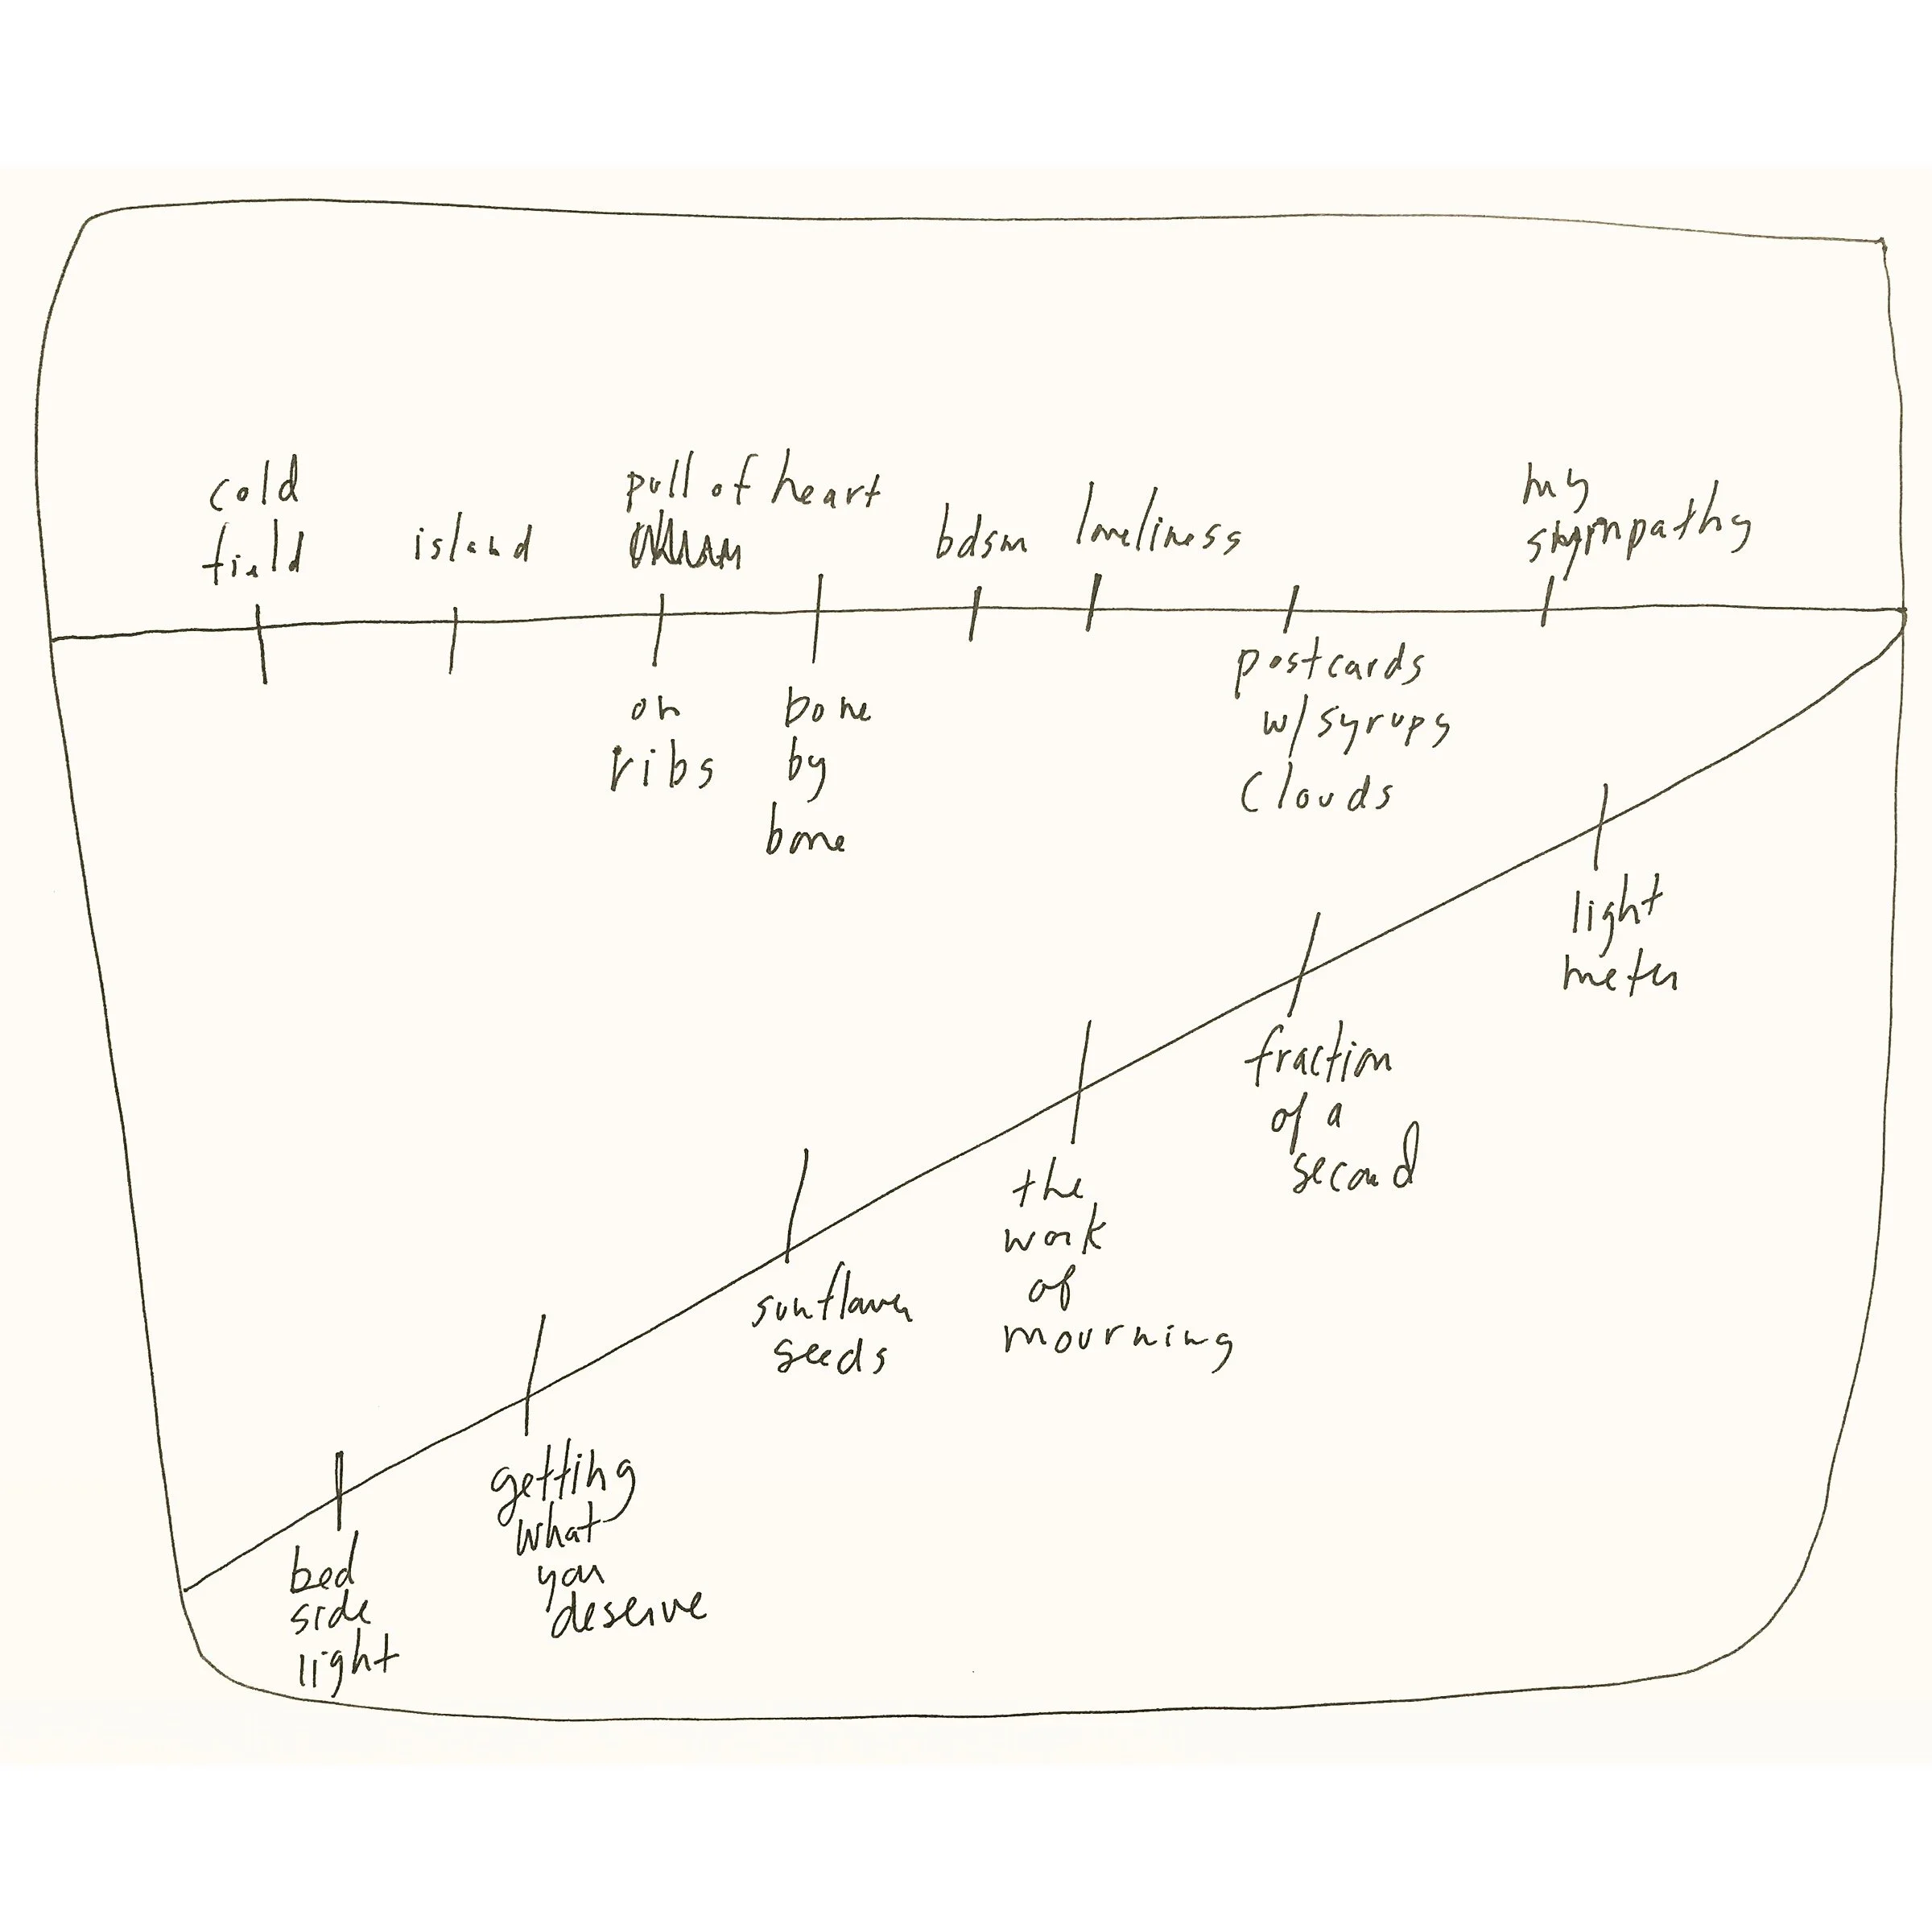 cold
field
island
pull of heart
on
ribs
bone
by
bone
bdsm
loneliness
postcards
w/ syrups
clouds
my
sympathy
light
meter
fraction
of a
second
the
work
of
mourning
sunflower
seeds
getting
what
you
deserve
bed
side
light